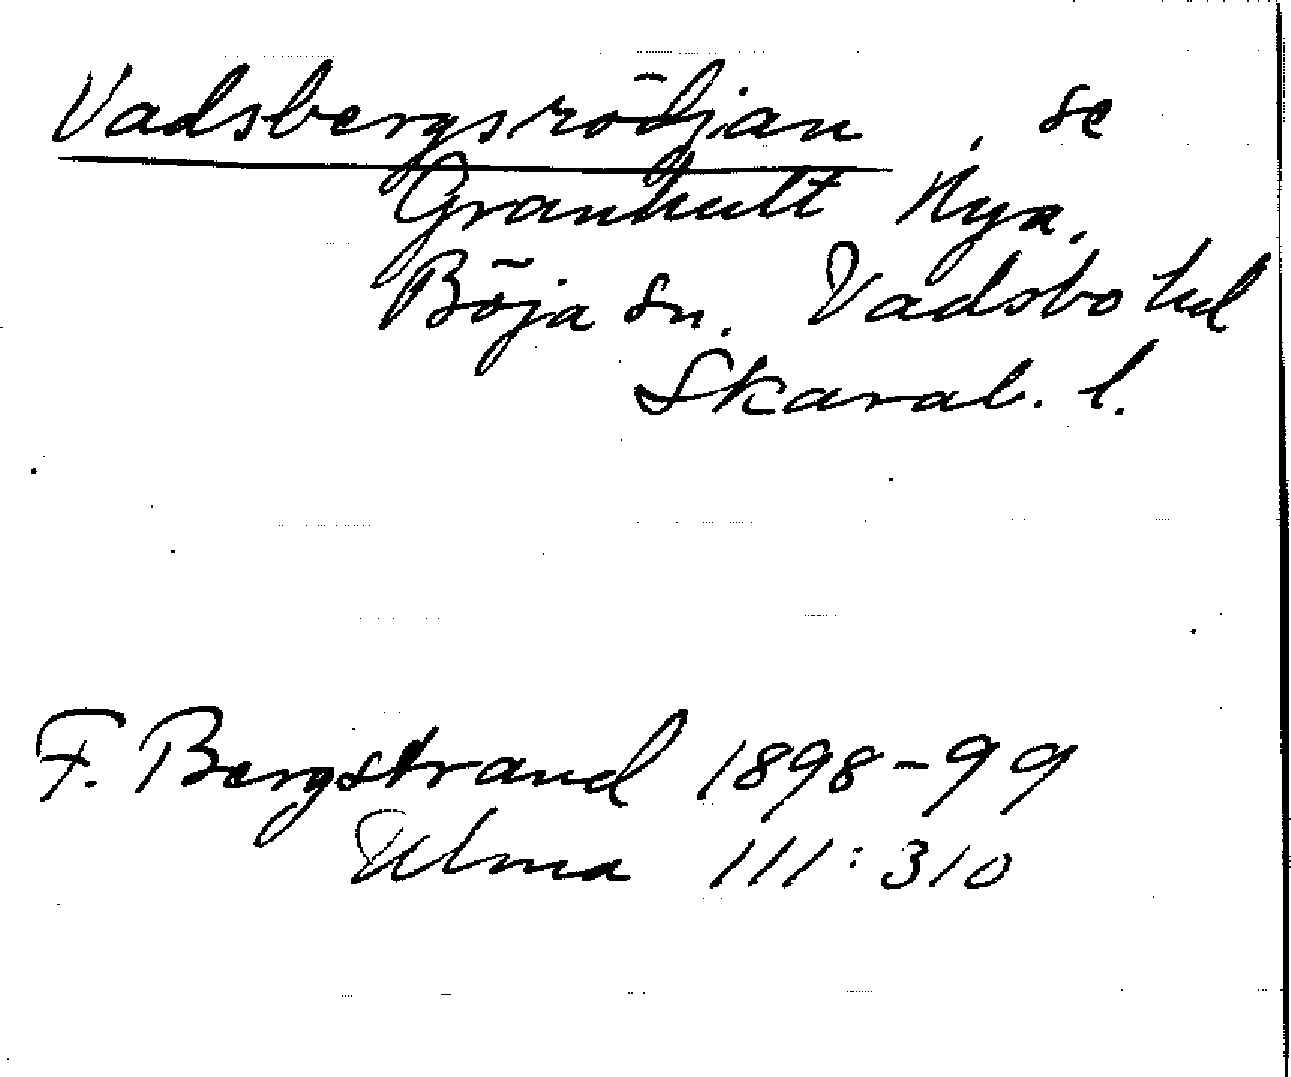 Vadsbergsrödjan, se
Granhult Nya,
Böja sn. Vadsbo hd
Skarab. l.
F. Bergstrand 1898-99
Ulma 111:310